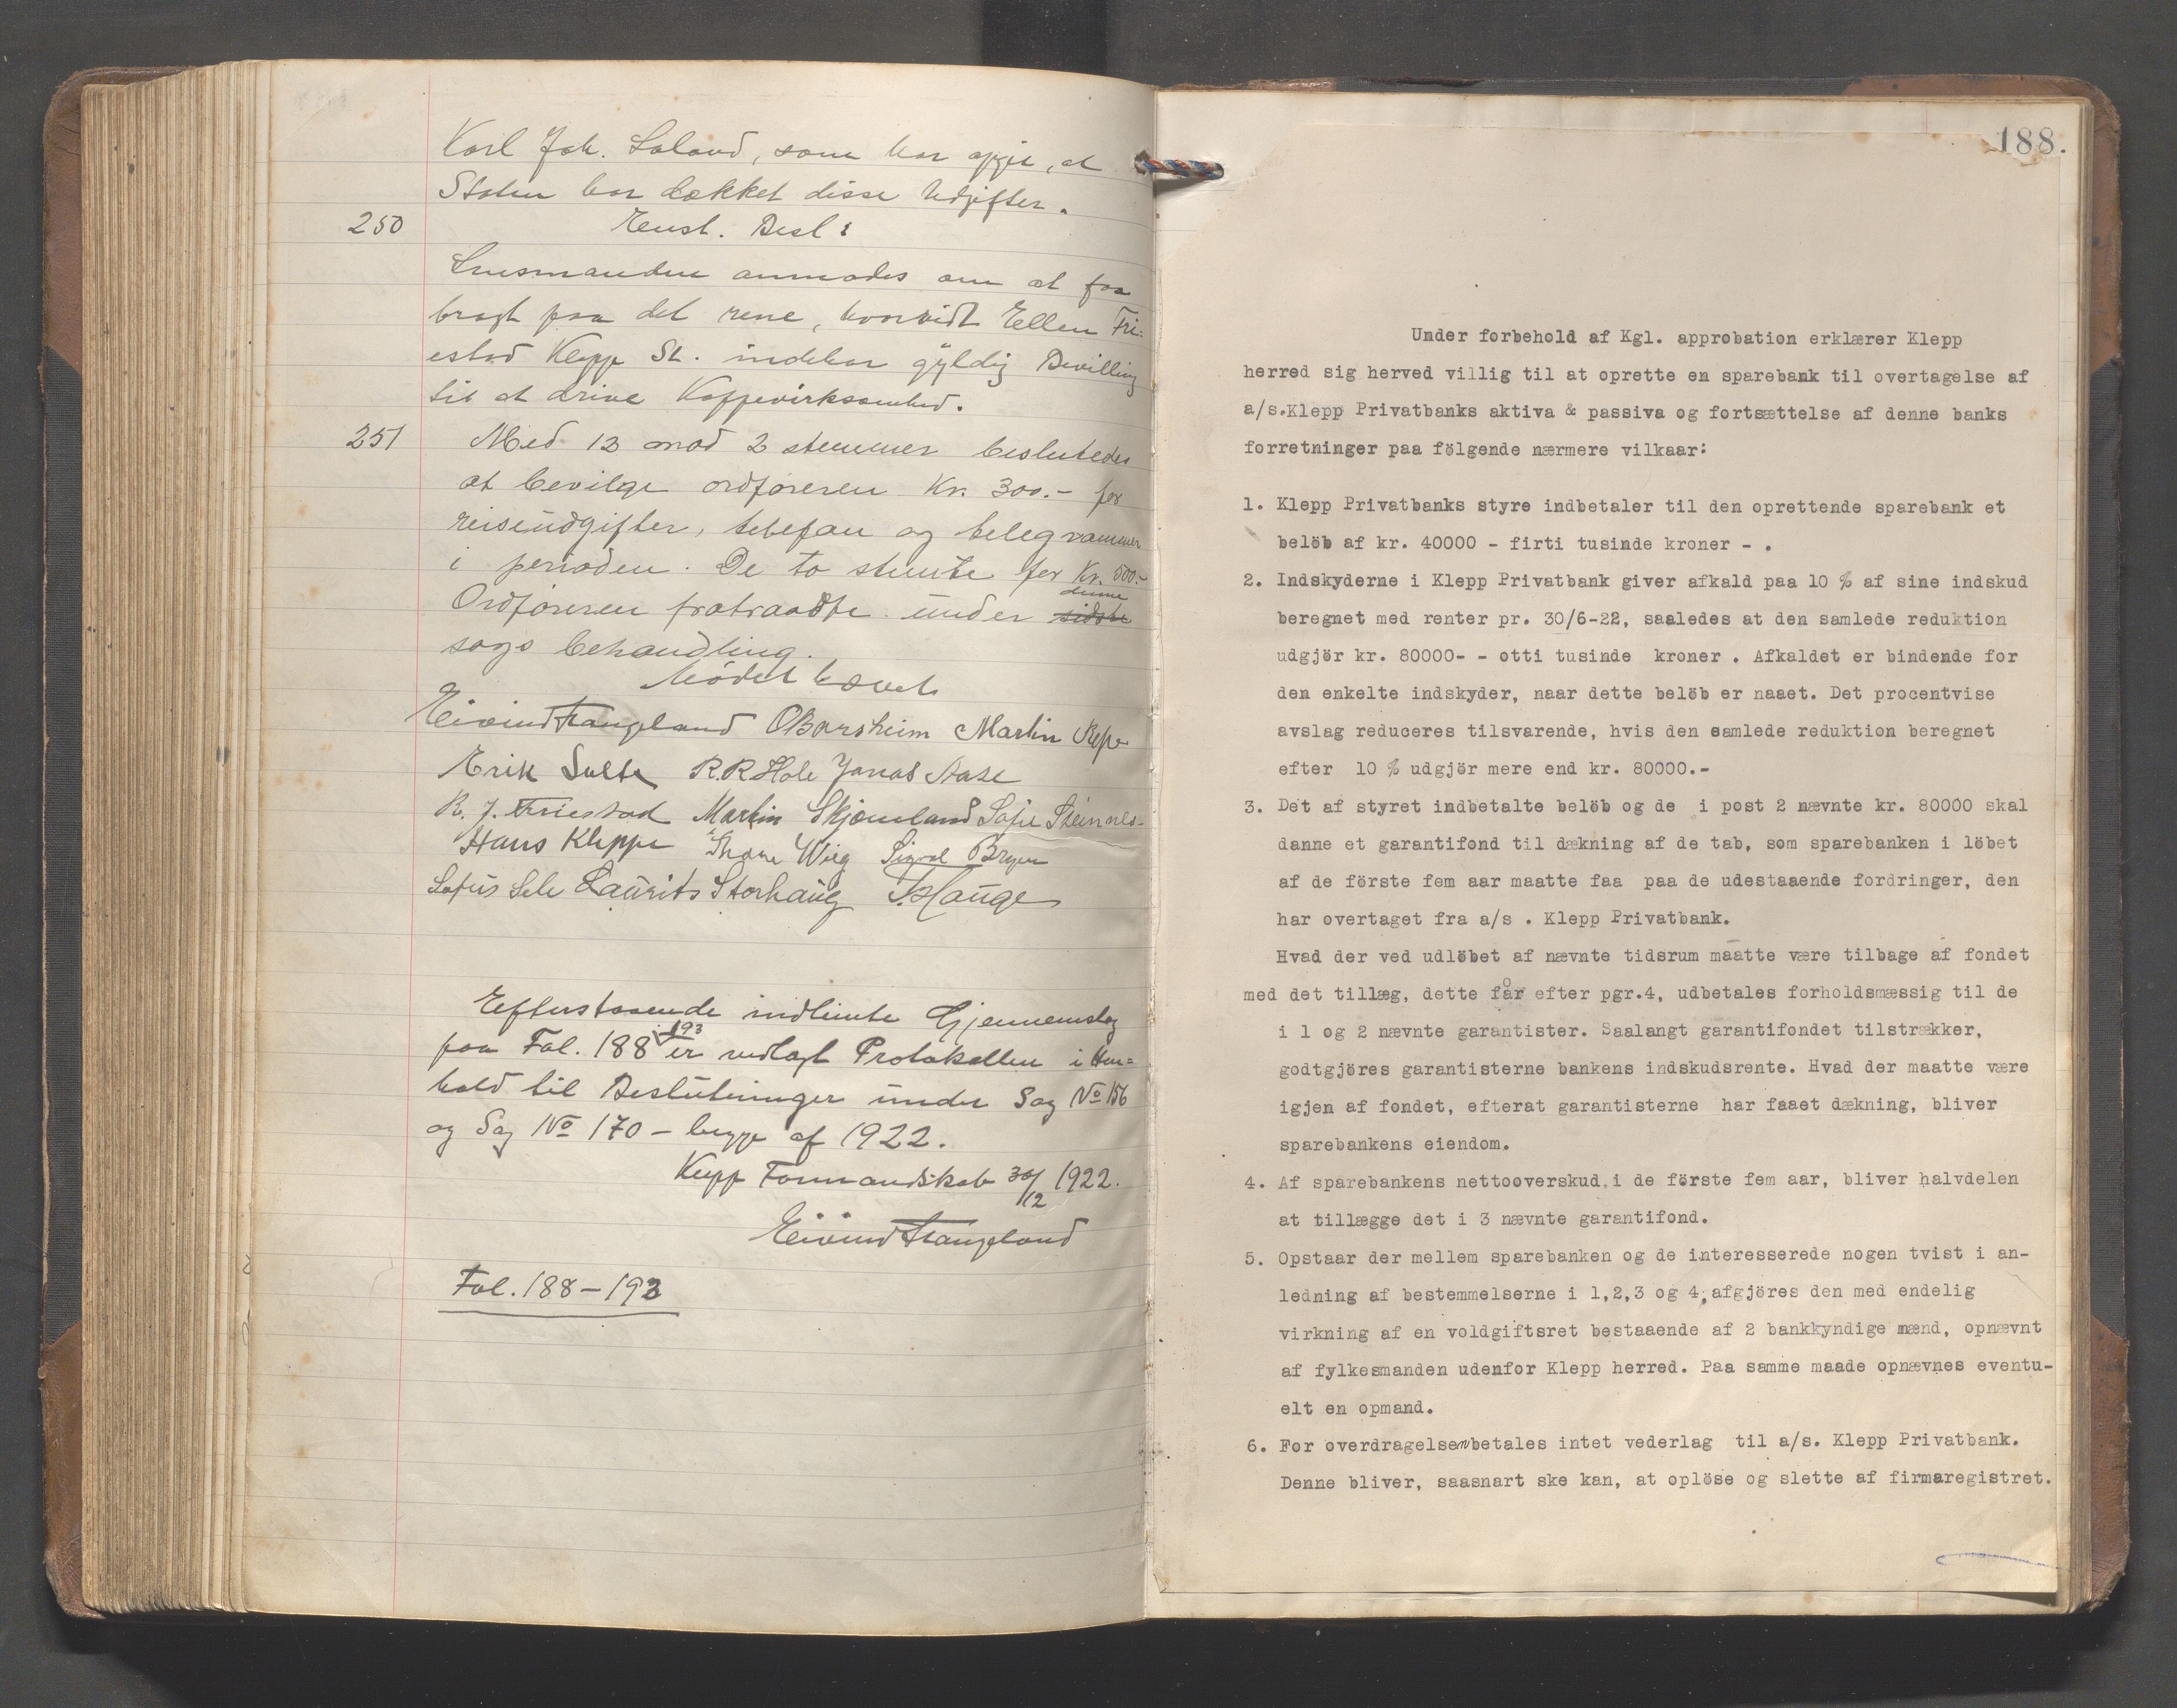 Karl Joh. Laland, som har opgit, at
Staten har dækket disse Udgifter.
250
Enst. Besl:
Lensmanden anmodes om at faa
bragt paa det rene, hvorvidt Ellen Fri-
estad Klepp St. indehar gyldig Bevilling
til at drive Kaffevirksomhed.
251 Med 13 mod 2 stemmer beslutedes
at bevilge ordføreren Kr. 300.- for
reiseudgifter, telefon og telegrammer
i perioden. De to stemte for Kr. 500.-
denne
Ordføreren fratraadte under sidste
sags behandling.
Mödet hævet.
Eivind Haugeland O Borsheim Martin Kleppe
Erik Sulte R.R. Hole Jonas Aase
R. J. Friestad Martin Skjæveland Sofie Steinnes
Hans Kleppe Thore Wiig Sigval Bryne
Sofus Sele Laurits Storhaug T. Hauge
Efterstaaende indlimte Gjennemslag
paa Fol. 188-193 er vedlagt Protokollen i Hen-
hold til Beslutninger under Sag No 156
og Sag No 170 - begge af 1922.
Klepp Formandskab 30/12 1922.
Eivind Haugeland
Fol. 188-193
188.
Under forbehold af Kgl. approbation erklærer Klepp
herred sig herved villig til at oprette en sparebank til overtagelse af
a/s.Klepp Privatbanks aktiva & passiva og fortsættelse af denne banks
forretninger paa fölgende nærmere vilkaar:
1. Klepp Privatbanks styre indbetaler til den oprettende sparebank et
belöb af kr. 40000 - firti tusinde kroner - .
2. Indskyderne i Klepp Privatbank giver afkald paa 10 % af sine indskud
beregnet med renter pr. 30/6-22, saaledes at den samlede reduktion
udgjör kr. 80000- - otti tusinde kroner . Afkaldet er bindende for
den enkelte indskyder, naar dette belöb er naaet. Det procentvise
avslag reduceres tilsvarende, hvis den samlede reduktion beregnet
efter 10 % udgjör mere end kr. 80000.-
3. Det af styret indbetalte belöb og de i post 2 nævnte kr. 80000 skal
danne et garantifond til dækning af de tab, som sparebanken i löbet
af de förste fem aar maatte faa paa de udestaaende fordringer, den
har overtaget fra a/s . Klepp Privatbank.
Hvad der ved udlöbet af nævnte tidsrum maatte være tilbage af fondet
med det tillæg, dette får efter pgr.4, udbetales forholdsmæssig til de
i 1 og 2 nævnte garantister. Saalangt garantifondet tilstrækker,
godtgjöres garantisterne bankens indskudsrente. Hvad der maatte være
igjen af fondet, efterat garantisterne har faaet dækning, bliver
sparebankens eiendom.
4. Af sparebankens nettooverskud i de förste fem aar, bliver halvdelen
at tillægge det i 3 nævnte garantifond.
5. Opstaar der mellem sparebanken og de interesserede nogen tvist i an-
ledning af bestemmelserne i 1,2,3 og 4, afgjöres den med endelig
virkning af en voldgiftsret bestaaende af 2 bankkyndige mænd, opnævnt
af fylkesmanden udenfor Klepp herred. Paa samme maade opnævnes eventu-
elt en opmand.
6. For overdragelsen betales intet vederlag til a/s. Klepp Privatbank.
Denne bliver, saasnart ske kan, at oplöse og slette af firmaregistret.